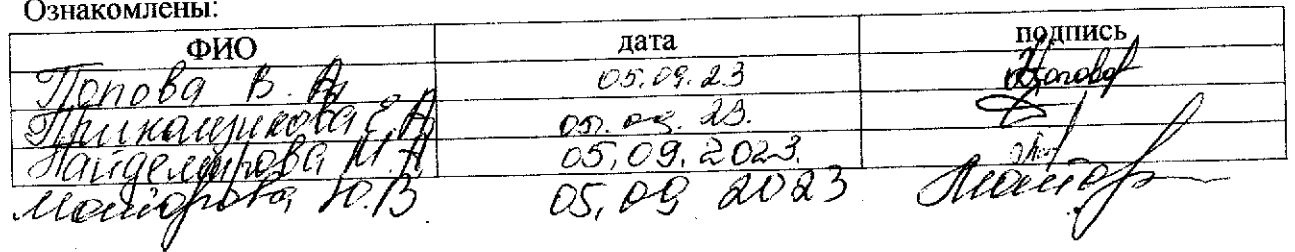 Ознакомлены:
ФИО дата подпись
Попова В. А. 05.09.23 Попова
Приказчикова Е.А 05.09.23.
М.А 05.09.2023.
Майорова Ю.В 05,09 2023 Майор